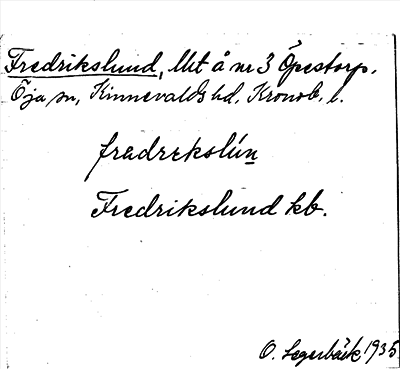 Fredrikslund, lht å nr 3 Öpestorp.
Öja sn, Kinnevalds hd, Kronob. l.
fredrekslún
Fredrikslund kb.
O. Legerbäck 1935